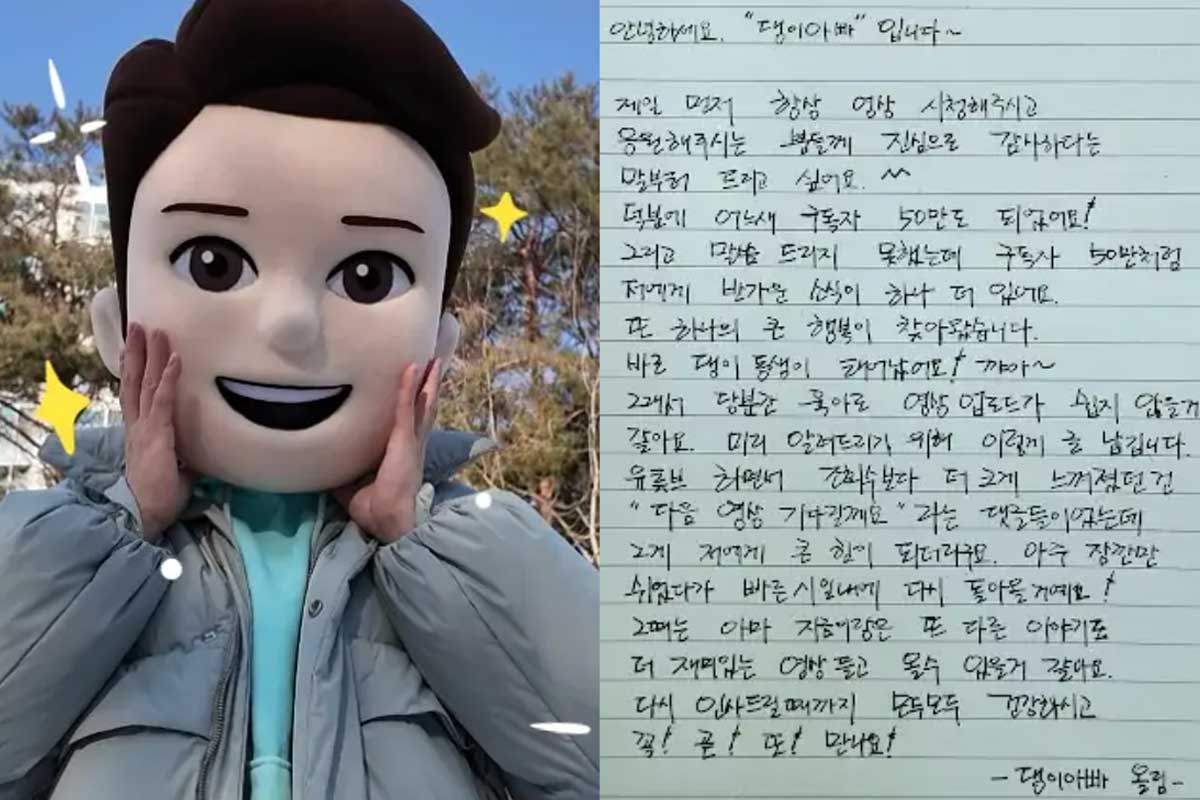 안녕하세요. "댕이아빠" 입니다~
제일 먼저 항상 영상 시청해주시고
응원해주시는 분들께 진심으로 감사하다는
말부터 드리고 싶어요. ^^
덕분에 어느새 구독자 50만도 되었어요!
그리고 말씀 드리지 못했는데 구독자 50만처럼
저에게 반가운 소식이 하나 더 있어요.
또 하나의 큰 행복이 찾아왔습니다.
바로 댕이 동생이 태어났어요! 꺄아~
그래서 당분간 육아로 영상 업로드가 쉽지 않을거
같아요. 미리 알려드리기 위해 이렇게 글 남깁니다.
유튜브 하면서 조회수보다 더 크게 느껴졌던 건
"다음 영상 기다릴께요" 라는 댓글들이었는데
그게 저에게 큰 힘이 되더라구요. 아주 잠깐만
쉬었다가 빠른 시일내에 다시 돌아올 거예요!
그때는 아마 지금이랑은 또 다른 이야기로
더 재미있는 영상 들고 올수 있을거 같아요.
다시 인사드릴 때까지 모두모두 건강하시고
꼭! 곧! 또! 만나요!
- 댕이아빠 올림 -